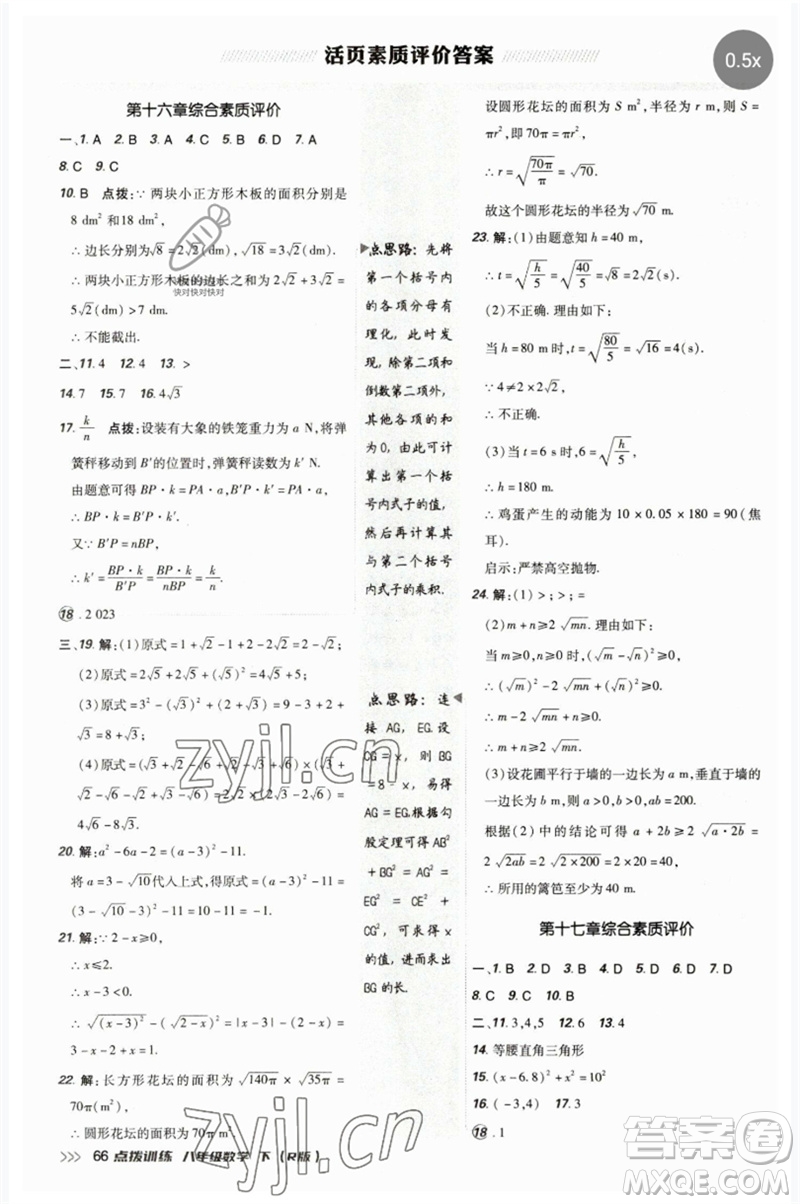 活页素质评价答案
0.5x
第十六章综合素质评价
一、1. A 2. B 3. A 4. C 5. B 6. D 7. A
8. C 9. C
10. B 点拨:∵ 两块小正方形木板的面积分别是
8 dm² 和18 dm²,
∴ 边长分别为√8=2√2(dm),√18=3√2(dm).
∴ 两块小正方形木板的边长之和为 2√2+3√2=
5√2(dm)>7 dm.
∴ 不能截出.
二、11. 4 12. 4 13. >
14. 7 15. 7 16. 4√3
17. k/n 点拨:设装有大象的铁笼重力为 a N,弹
簧秤移动到 B′的位置时,弹簧秤读数为 k′ N.
由题意可得 BP·k=PA·a,B′P·k′=PA·a,
∴ BP·k=B′P·k′.
又∵ B′P=nBP,
∴ k′=BP·k/B′P=BP·k/nBP=k/n.
18. 2 023
三、19. 解:(1)原式=1+√2-1+2-2√2=2-√2.
(2)原式=2√2+2√2+(√5)²=4√2+5;
(3)原式=3²-(√3)²+(√2)²=9-3+2=
8;
(4)原式=(√54+√6)÷√3-(√6+√2)=
4√6÷√3-√6-√2=4√2-√6-√2=
3√2-√6.
20. 解:a²-6a-2=(a-3)²-11.
将 a=3-√10代入上式,得原式=(a-3)²-11=
(3-√10-3)²-11=10-11=-1.
21. 解:∵2-x≥0,
∴ x≤2.
∴ x-3<0.
∴ √(x-3)²-(√2-x)²=|x-3|-(2-x)=
3-x-2+x=1.
22. 解:长方形花坛的面积为 √140π×√35π=
70π(m²),
∴ 圆形花坛的面积为 70π m².
点思路:先将
第一个括号内
的各项分母有
理化,此时发
现,除第二项和
倒数第二项外,
其他各项的和
为0,由此可计
算出第一个括
号内式子的值,
然后再计算其
与第二个括号
内式子的乘积.
点思路:连
接 AG,EG.设
CG=x,则 BG
=8-x,易得
AG=EG,根据勾
股定理可得 AB²
+BG²=AG²=
EG²=CE²+
CG²,可求得
x,然后求出
BG 的长.
设圆形花坛的面积为 S m²,半径为 r m,则 S=
πr²,即 70π=πr²,
∴ r=√(70π/π)=√70.
故这个圆形花坛的半径为 √70 m.
23. 解:(1)由题意知 h=40 m,
∴ t=√(h/5)=√(40/5)=√8=2√2(s).
(2)不正确. 理由如下:
当 h=80 m 时,t=√(80/5)=√16=4(s).
∵ 4≠2×2√2,
∴ 不正确.
(3)当 t=6 s时,6=√(h/5),
∴ h=180.
∴ 鸡蛋产生的动能为 10×0.05×180=90(焦
耳).
启示:严禁高空抛物.
24. 解:(1)>;>;=
(2)m+n≥2√mn. 理由如下:
当 m≥0,n≥0 时,
∵ (√m-√n)²≥0,
∴ (√m)²-2√m·√n+(√n)²≥0.
∴ m-2√mn+n≥0.
∴ m+n≥2√mn.
(3)设花圃平行于墙的一边长为 a m,垂直于墙的
一边长为 b m,则 a>0,b>0,ab=200.
根据(2)中的结论可得 a+2b≥2√a·2b=
2√2ab=2√2×200=2×20=40,
∴ 所用的篱笆至少为 40 m.
第十七章综合素质评价
一、1. B 2. D 3. A 4. D 5. A 6. B 7. D
8. C 9. C 10. B
二、11. 3,4,5 12. 6 13. 4
14. 等腰直角三角形
15. (x-6.8)²+x²=10²
16. (-3,4) 17. 3
18. 1
66 点拨训练 八年级数学 下(R版)
快对快对快对
zyjl.cn
zyjl.cn
答案圈
MXQE.COM